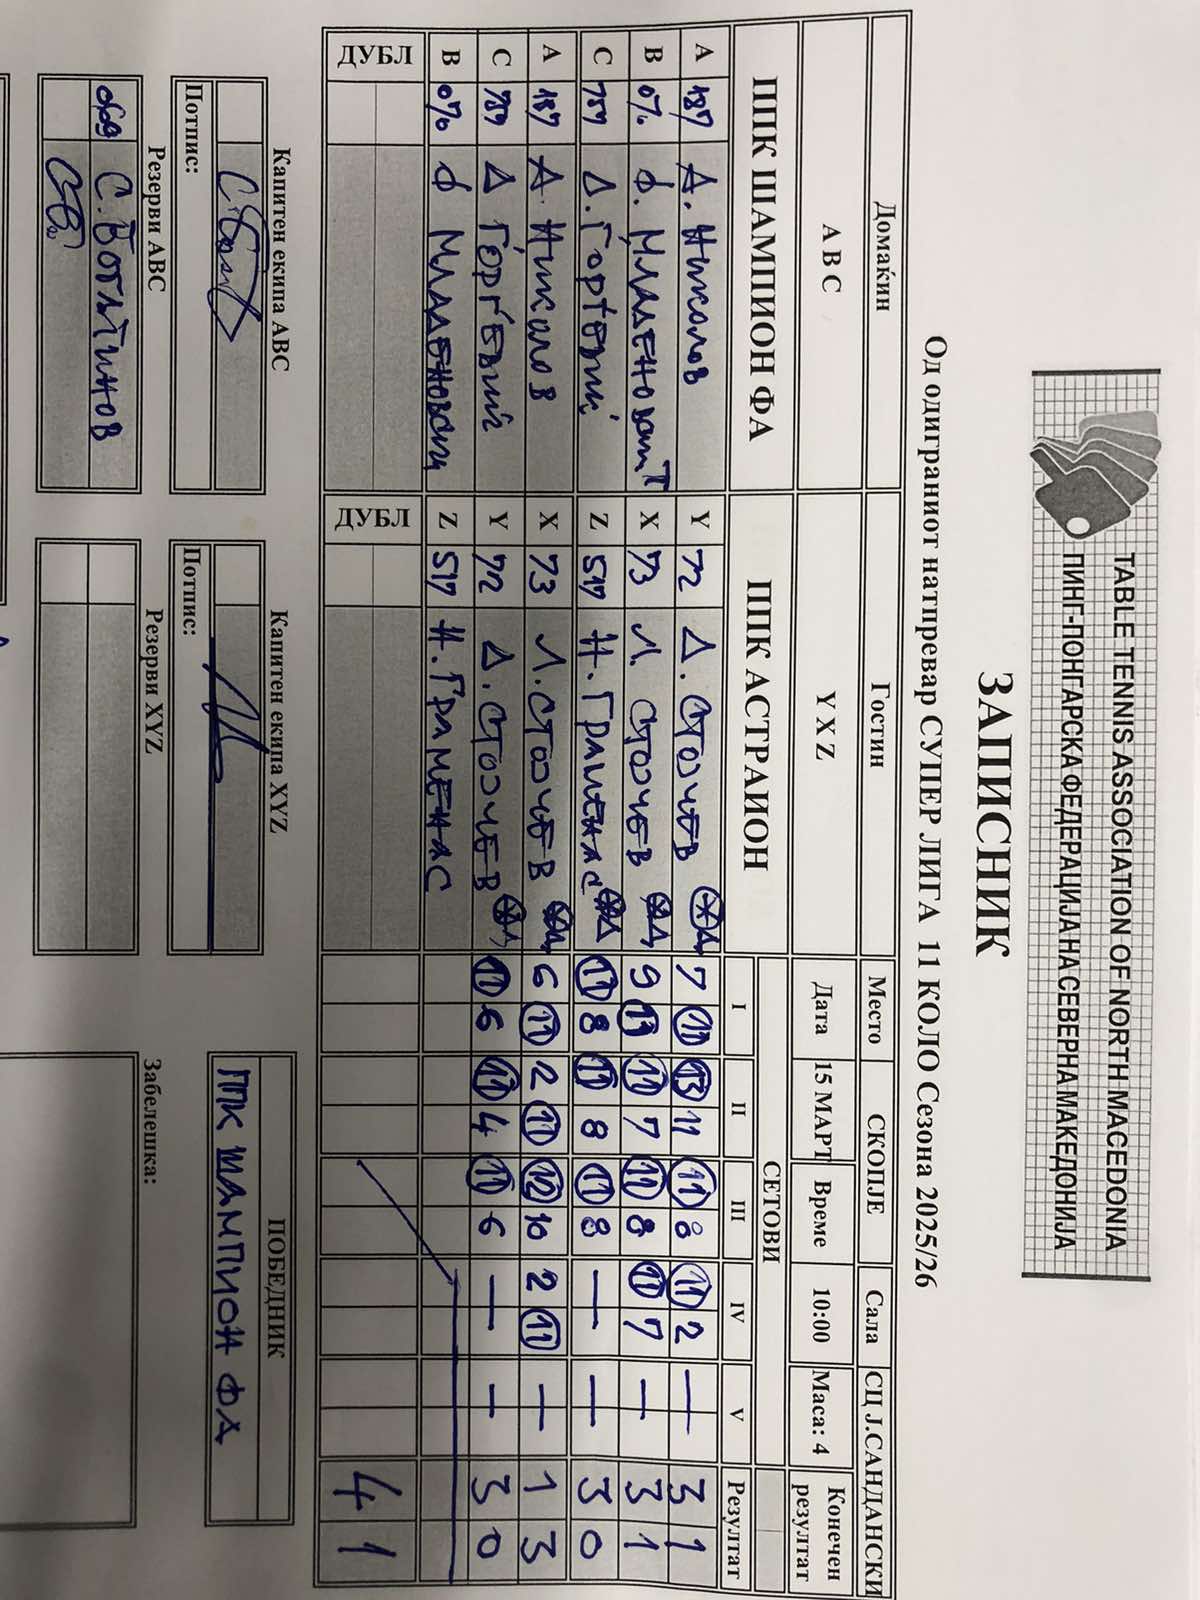 TABLE TENNIS ASSOCIATION OF NORTH MACEDONIA
ПИНГ-ПОНГАРСКА ФЕДЕРАЦИЈА НА СЕВЕРНА МАКЕДОНИЈА
ЗАПИСНИК
Од одиграниот натпревар СУПЕР ЛИГА 11 КОЛО Сезона 2025/26
Домаќин Гостин Место СКОПЈЕ Сала СЦ Ј.САНДАНСКИ
A B C Y X Z Дата 15 МАРТ Време 10:00 Маса: 4 Конечен резултат
ППК ШАМПИОН ФА ППК АСТРАИОН СЕТОВИ
I II III IV V Резултат
A 187 А. Николов Y 72 Д. Стојчев 7 11 13 11 11 8 11 2 — 3 1
B Ф. Младеновски X 73 Л. Стојчев 9 11 11 7 11 8 11 7 — 3 1
C 757 Д. Ѓорѓевиќ Z 517 Н. Граменас 11 8 11 8 11 8 — — 3 0
A 187 А. Николов X 73 Л. Стојчев 6 11 2 11 12 10 2 11 — 1 3
C 757 Д Ѓорѓевиќ Y 72 Д. Стојчев 11 6 11 4 11 6 — — 3 0
B Ф Младеновски Z 517 Н. Граменас
ДУБЛ ДУБЛ 4 1
Капитен екипа ABC Капитен екипа XYZ ПОБЕДНИК
Потпис: Потпис: ППК ШАМПИОН ФА
Резерви ABC Резерви XYZ Забелешка:
С. Богатинов